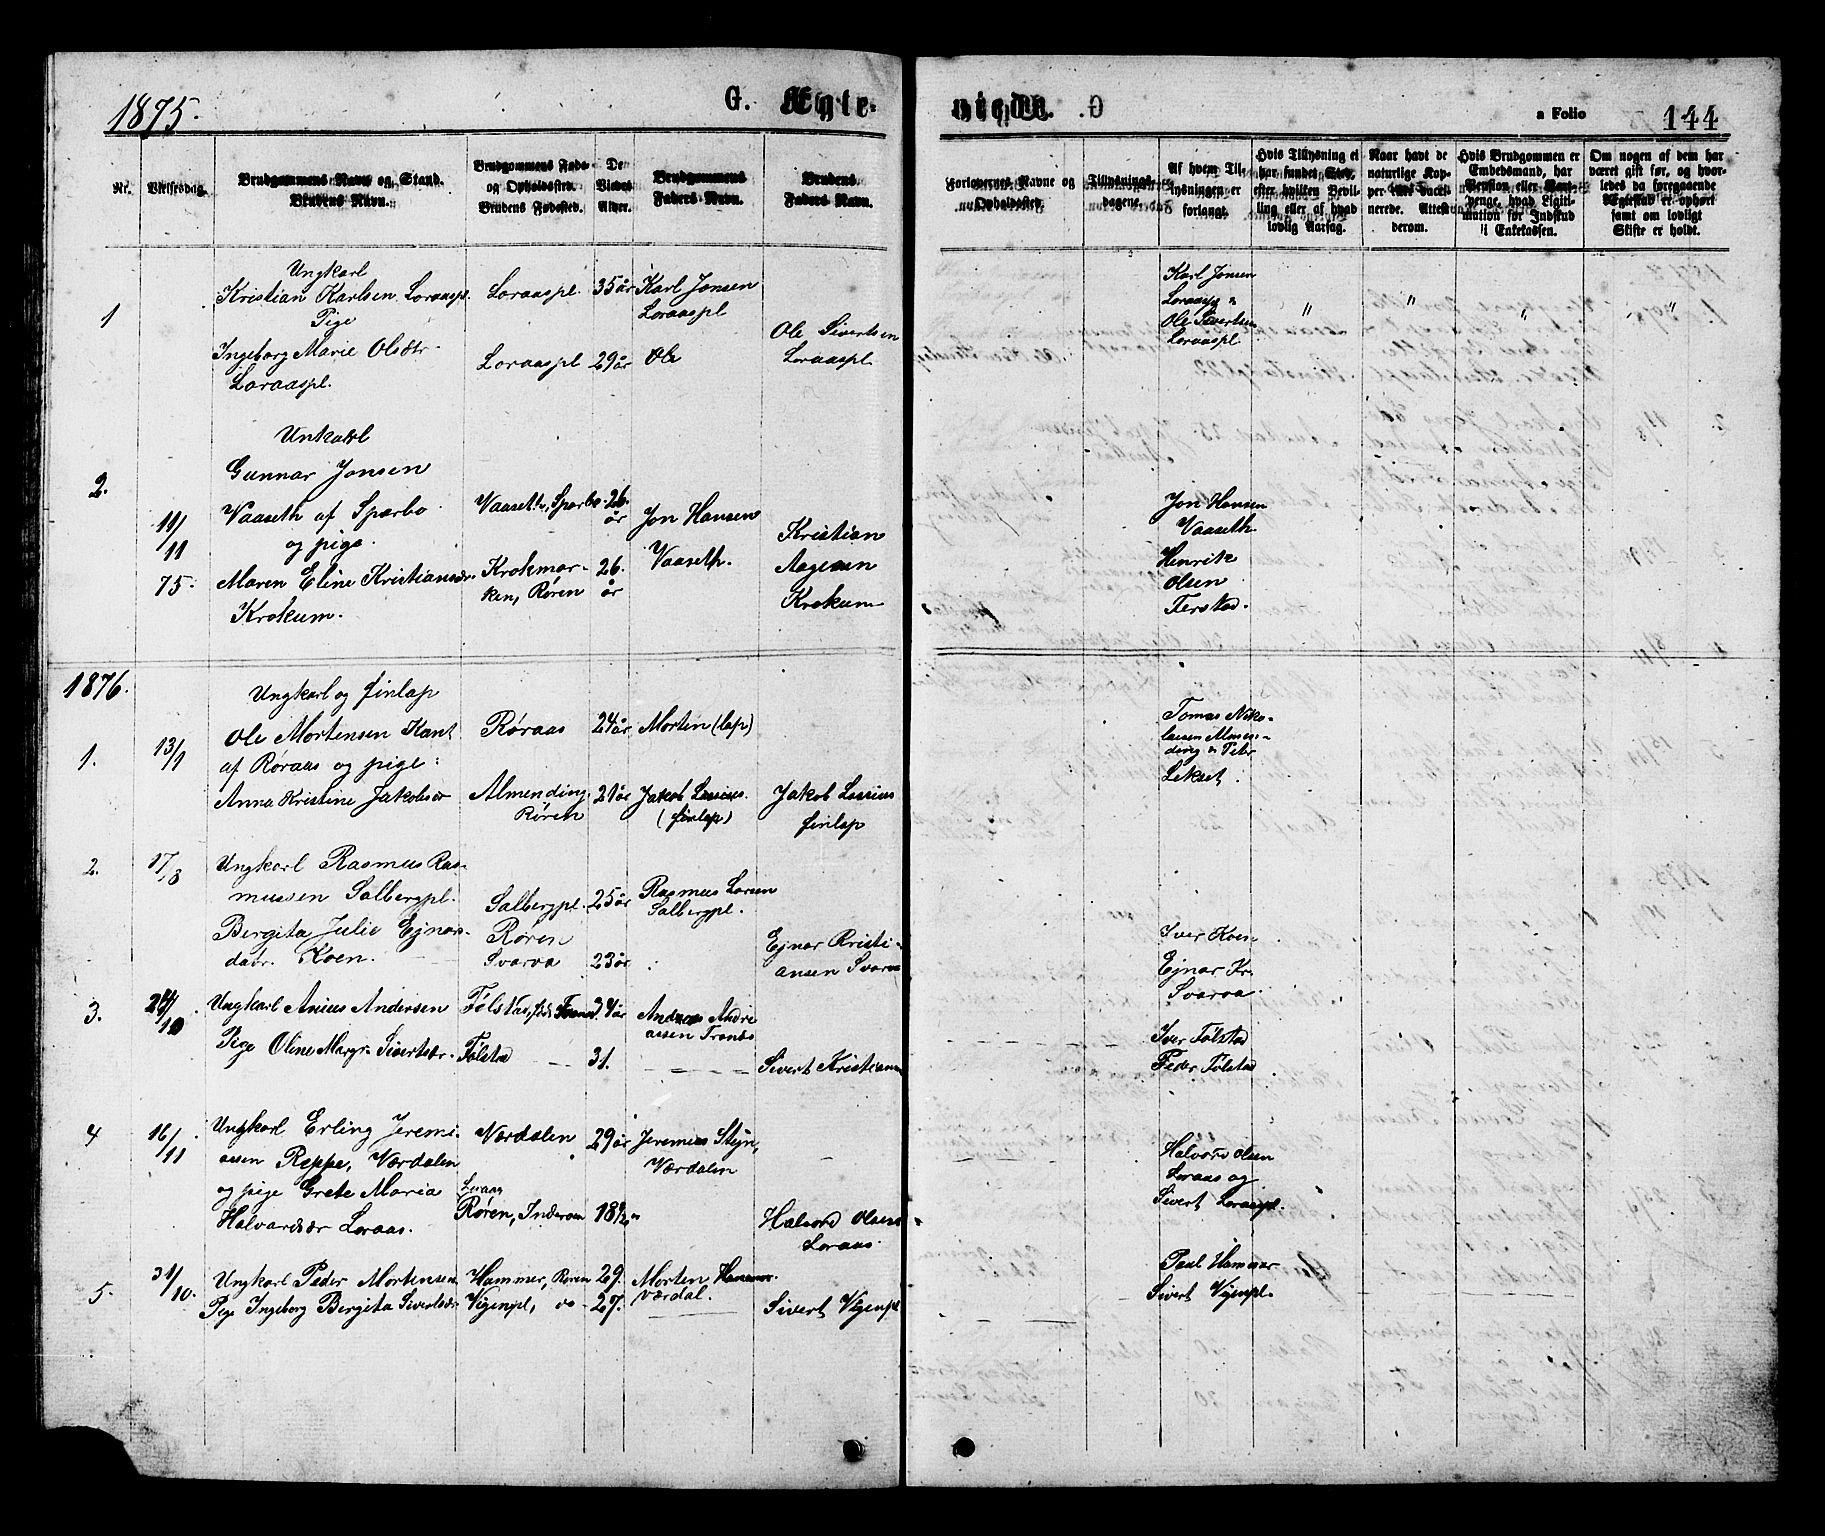 1875.
G. Ægte-
viede.
a Folio
144
Nr.
Vielsesdag.
Brudgommens Navn og Stand.
Brudens Navn.
Brudgommens Føde-
og Opholdssted.
Brudens Fødested.
De
Viedes
Alder.
Brudgommens
Faders Navn.
Brudens
Faders Navn.
Forlovernes Navne og
Opholdssted.
Tillysnings-
dagene.
Af hvem Til-
lysningen er
forlangt.
Hvis Tillysning ei
har fundet Sted,
efter hvilken Bevil-
ling eller af hvad
lovlig Aarsag.
Naar havt de
naturlige Kop-
per eller vacci-
nerede. Attest
derom.
Hvis Brudgommen er
Embedsmand, har
Pension eller Vart-
penge, hvad Ligiti-
mation for Indskud
i Enkekassen.
Om nogen af dem har
været gift før, og hvor-
ledes da foregaaende
Ægteskab er ophørt
samt om lovligt
Skifte er holdt.
1
Ungkarl
Kristian Karlsen Loraaspl.
Pige
Ingeborg Marie Olsdtr.
Loraaspl.
Loraaspl.
Loraaspl
35 år
29 år
Karl Jonsen
Loraaspl
Ole
Ole Sivertsen
Loraaspl
Karl Jonsen
Ole Sivertsen
Loraaspl
" " " "
2.
19/11
75.
Unkarl
Gunnar Jonsen
Vaaseth af Sparbo
og pige
Maren Eline Kristiansdr.
Krokum.
Vaaseth, Sparbo
Krokmar-
ken, Røren
26.
år
26.
år
Jon Hansen
Vaaseth.
Kristian
Aagesen
Krokum
Jon Hansen
Vaaseth
Henrik
Olsen
Ferstad.
1876.
1.
13/1
Ungkarl og finlap
Ole Mortensen Kant
af Røraas og pige:
Anna Kristine Jakobsdr
Røraas
Almending
Røren
24 år
21 år
Morten (lap)
Jakob Lassius
(finlap)
Jakob Lassius
finlap
Tomas Niko-
laisen Almen-
ding & Peter
Lekset.
2.
17/8
Ungkarl Rasmus Ras-
mussen Salbergpl.
Bergita Julie Ejnars-
datr. Koen.
Salbergpl.
Røren
Svarva
25 år
23 år
Rasmus Larsen
Salbergpl.
Ejnar Kristi-
ansen Svarva
Iver Koen
Ejnar Kr.
Svarva.
3.
24/10
Ungkarl Anius Andersen
Pige Oline Margr. Sivertsdr.
Følstad, født
Følstad
24 år
31.
Andreas Andre
assen
Sivert Kristiansen
Iver Følstad
Peder Følstad
4
16/11
Ungkarl Erling Jeremi-
assen Reppe, Værdalen
og pige Grete Maria
Halvardsdr Loraas.
Værdalen
Loraas
Røren, Inderøen
29 år
18 1/2 "
Jeremias Stejn,
Værdalen
Halvord Olsen
Loraas.
Halvord Olsen
Loraas og
Sivert Loraaspl.
5.
31/10.
Ungkarl Peder Mortensen
Pige Ingeborg Bergita Sivertsdr
Hammer, Røren
Vigenpl, do
29.
27.
Morten Hammer.
Værdal.
Sivert Vigenpl
Paul Hammer
Sivert Vigenpl.